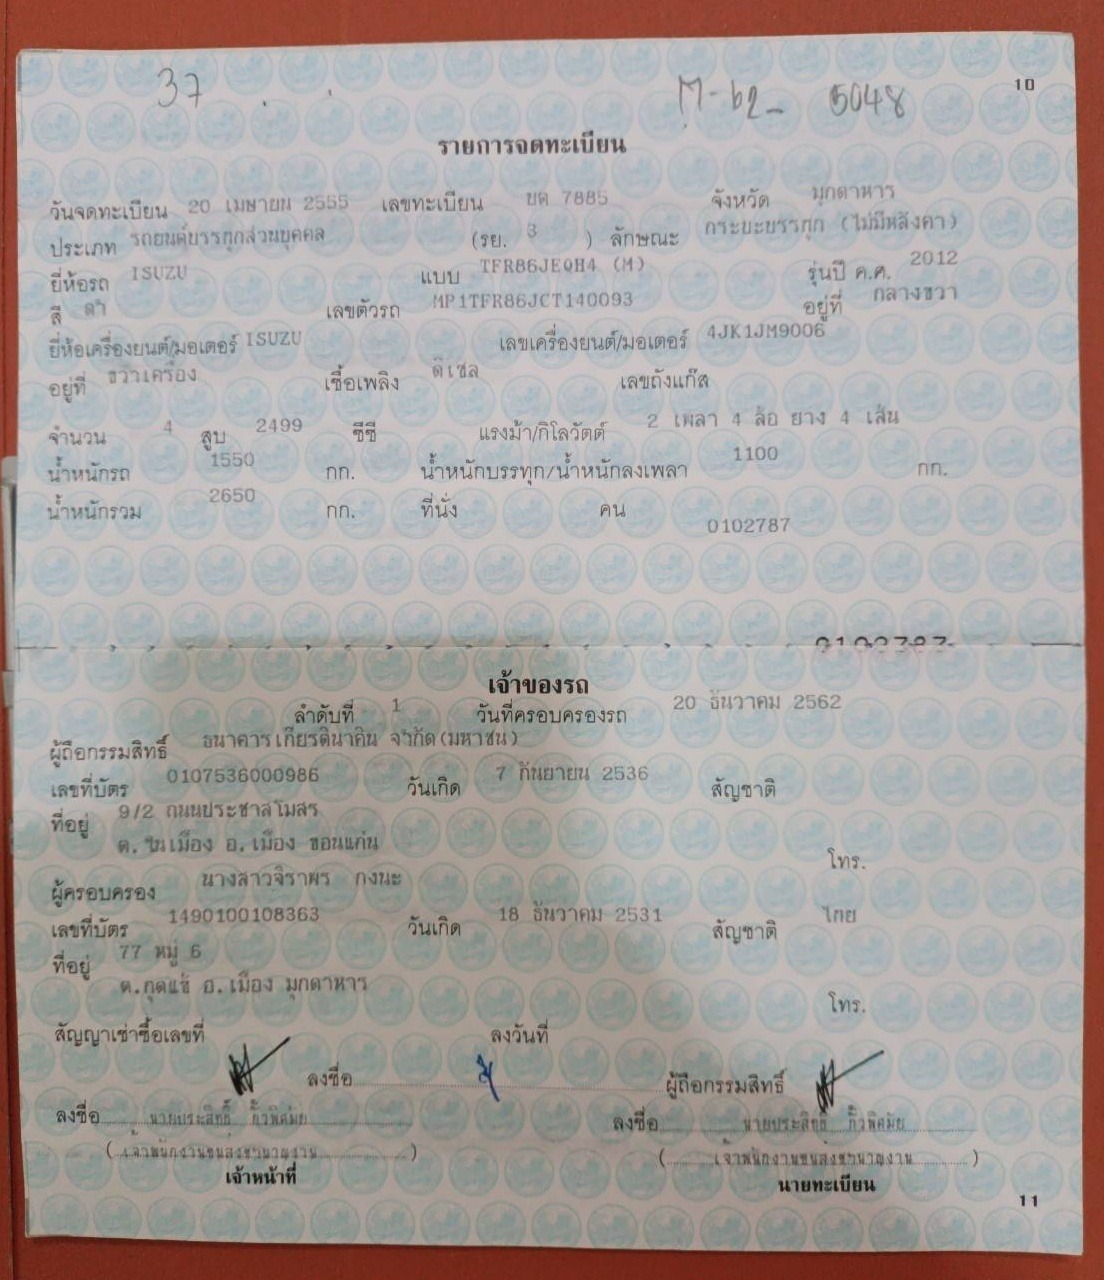 37
M-62- 5048
10
รายการจดทะเบียน
วันจดทะเบียน 20 เมษายน 2555 เลขทะเบียน บต 7885 จังหวัด มุกดาหาร
ประเภท รถยนต์บรรทุกส่วนบุคคล (รย. 3 ) ลักษณะ กระบะบรรทุก (ไม่มีหลังคา)
ยี่ห้อรถ ISUZU แบบ TFR86JEQH4 (M) รุ่นปี ค.ศ. 2012
สี ดำ เลขตัวรถ MP1TFR86JCT140093 อยู่ที่ กลางขวา
ยี่ห้อเครื่องยนต์/มอเตอร์ ISUZU เลขเครื่องยนต์/มอเตอร์ 4JK1JM9006
อยู่ที่ ขวาเครื่อง เชื้อเพลิง ดีเซล เลขถังแก๊ส
จำนวน 4 สูบ 2499 ซีซี แรงม้า/กิโลวัตต์ 2 เพลา 4 ล้อ ยาง 4 เส้น
น้ำหนักรถ 1550 กก. น้ำหนักบรรทุก/น้ำหนักลงเพลา 1100 กก.
น้ำหนักรวม 2650 กก. ที่นั่ง คน
0102787
เจ้าของรถ
ลำดับที่ 1 วันที่ครอบครองรถ 20 ธันวาคม 2562
ผู้ถือกรรมสิทธิ์ ธนาคารเกียรตินาคิน จำกัด(มหาชน)
เลขที่บัตร 0107536000986 วันเกิด 7 กันยายน 2536 สัญชาติ
ที่อยู่ 9/2 ถนนประชาสโมสร
ต.ในเมือง อ.เมือง ขอนแก่น
โทร.
ผู้ครอบครอง นางสาวจิราพร กงนะ
เลขที่บัตร 1490100108363 วันเกิด 18 ธันวาคม 2531 สัญชาติ ไทย
ที่อยู่ 77 หมู่ 6
ต.กุดแข้ อ.เมือง มุกดาหาร
โทร.
สัญญาเช่าซื้อเลขที่ ลงวันที่
ลงชื่อ ผู้ถือกรรมสิทธิ์
ลงชื่อ นายประสิทธิ์ กิ้วพิศมัย ลงชื่อ นายประสิทธิ์ กิ้วพิศมัย
(เจ้าพนักงานขนส่งชำนาญงาน) (เจ้าพนักงานขนส่งชำนาญงาน)
เจ้าหน้าที่ นายทะเบียน
11